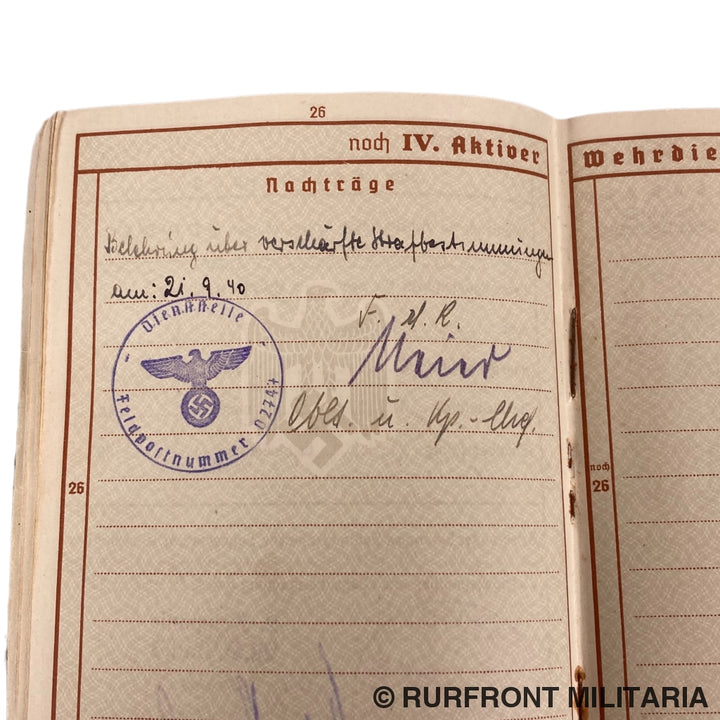 26
noch IV. Aktiver
Wehrdie
Nachträge
Belehrung über verschärfte Strafbestimmungen
am: 21. 9. 40
Dienststelle
Feldpostnummer 02747
F. d. R.
Meier
Oblt. u. Kp.-Chef.
26
noch
26
© RURFRONT MILITARIA